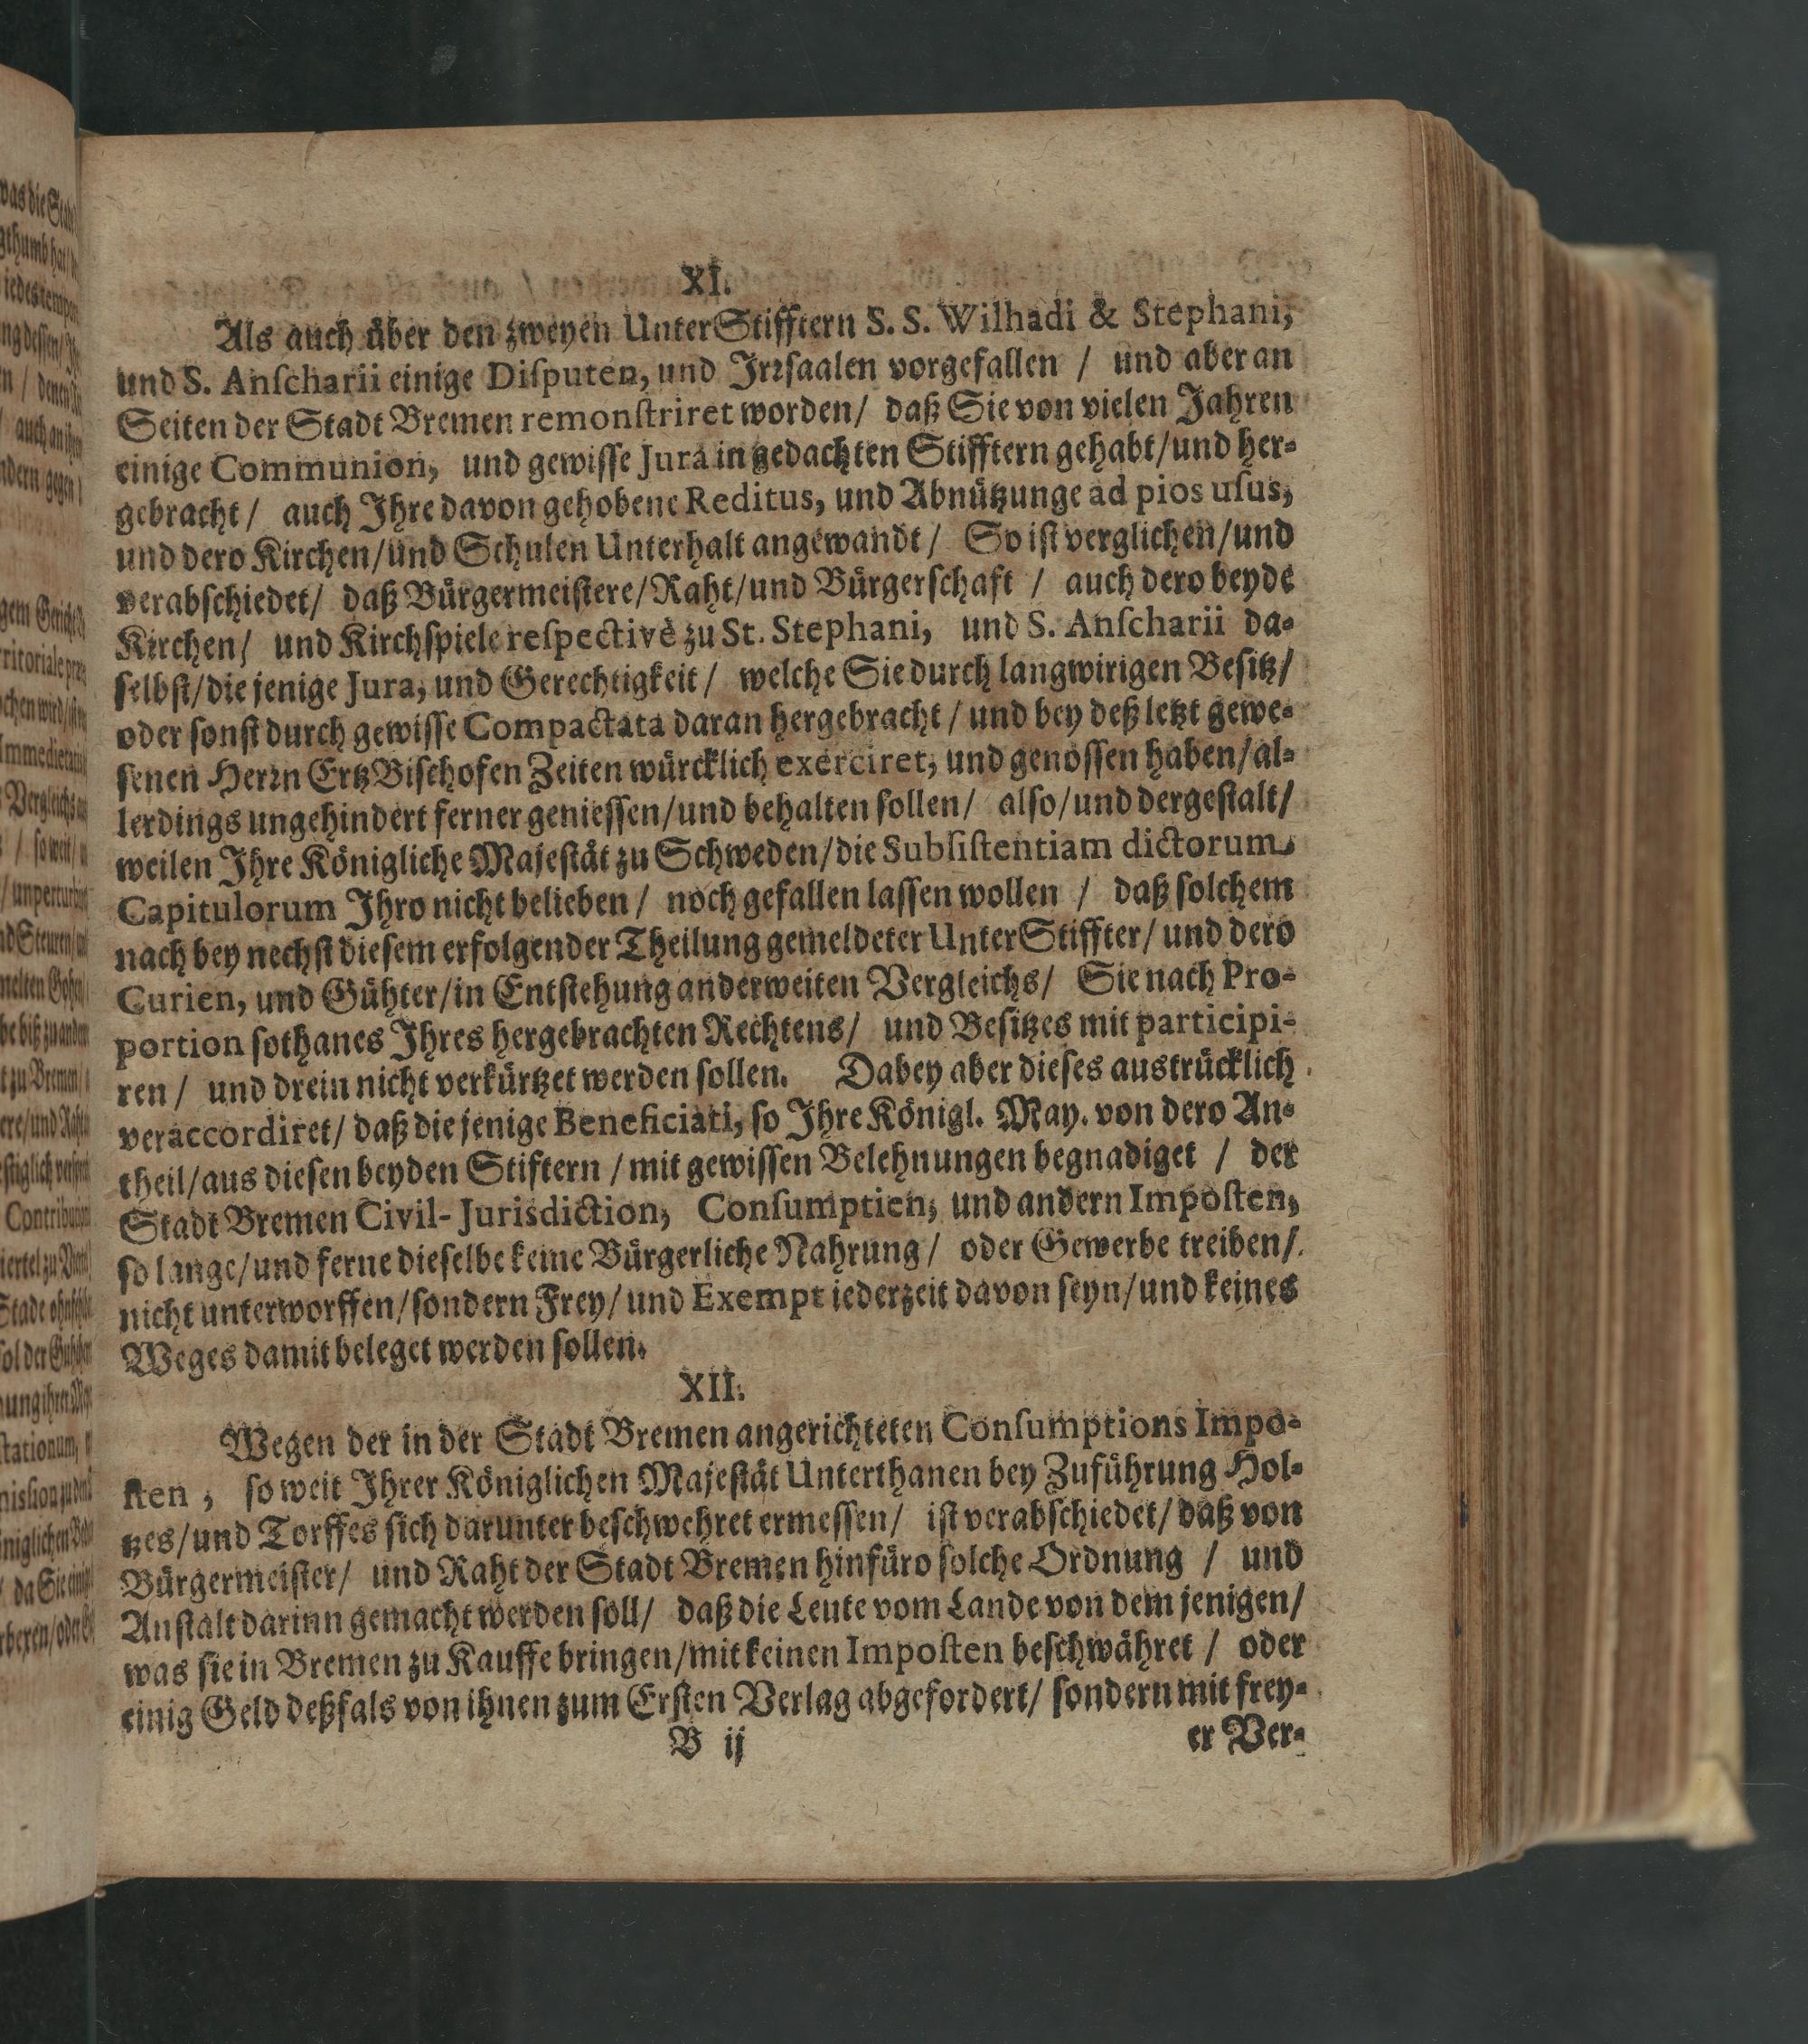 XI.
Als auch über den zweyen UnterStifftern S. S. Wilhadi & Stephani,
und S. Anscharii einige Disputen, und Irrsaalen vorgefallen / und aber an
Seiten der Stadt Bremen remonstriret worden/ daß Sie von vielen Jahren
einige Communion, und gewisse Jura in gedachten Stifftern gehabt/und her-
gebracht/ auch Ihre davon gehobene Reditus, und Abnützunge ad pios usus,
und dero Kirchen/und Schulen Unterhalt angewandt/ So ist verglichen/und
verabschiedet/ daß Bürgermeistere/Raht/und Bürgerschaft / auch dero beyde
Kirchen/ und Kirchspiele respectivè zu St. Stephani, und S. Anscharii da-
selbst/die jenige Jura, und Gerechtigkeit/ welche Sie durch langwirigen Besitz/
oder sonst durch gewisse Compactata daran hergebracht/und bey deß letzt gewe-
senen Herrn ErtzBischofen Zeiten würcklich exerciret, und genossen haben/al-
lerdings ungehindert ferner geniessen/und behalten sollen/ also/und dergestalt/
weilen Ihre Königliche Majestät zu Schweden/die Subsistentiam dictorum
Capitulorum Ihro nicht belieben/ noch gefallen lassen wollen / daß solchem
nach bey nechst diesem erfolgender Theilung gemeldeter UnterStiffter/ und dero
Curien, und Gühter/in Entstehung anderweiten Vergleichs/ Sie nach Pro-
portion sothanes Ihres hergebrachten Rechtens/ und Besitzes mit participi-
ren/ und drein nicht verkürtzet werden sollen. Dabey aber dieses austrücklich
veraccordiret/ daß die jenige Beneficiati, so Ihre Königl. May. von dero An-
theil/aus diesen beyden Stiftern /mit gewissen Belehnungen begnadiget / der
Stadt Bremen Civil-Jurisdiction, Consumptien, und andern Imposten,
so lange/und ferne dieselbe keine Bürgerliche Nahrung/ oder Gewerbe treiben/
nicht unterworffen/sondern Frey/und Exempt iederzeit davon seyn/und keines
Weges damit beleget werden sollen.
XII.
Wegen der in der Stadt Bremen angerichteten Consumptions Impo-
sten, so weit Ihrer Königlichen Majestät Unterthanen bey Zuführung Hol-
tzes/und Torffes sich darunter beschwehret ermessen/ ist verabschiedet/daß von
Bürgermeister/ und Raht der Stadt Bremen hinfüro solche Ordnung / und
Anstalt darinn gemacht werden soll/ daß die Leute vom Lande von dem jenigen/
was sie in Bremen zu Kauffe bringen/mit keinen Imposten beschwähret / oder
einig Geld deßfals von ihnen zum Ersten Verlag abgefordert/ sondern mit frey-
B ij
er Ver-